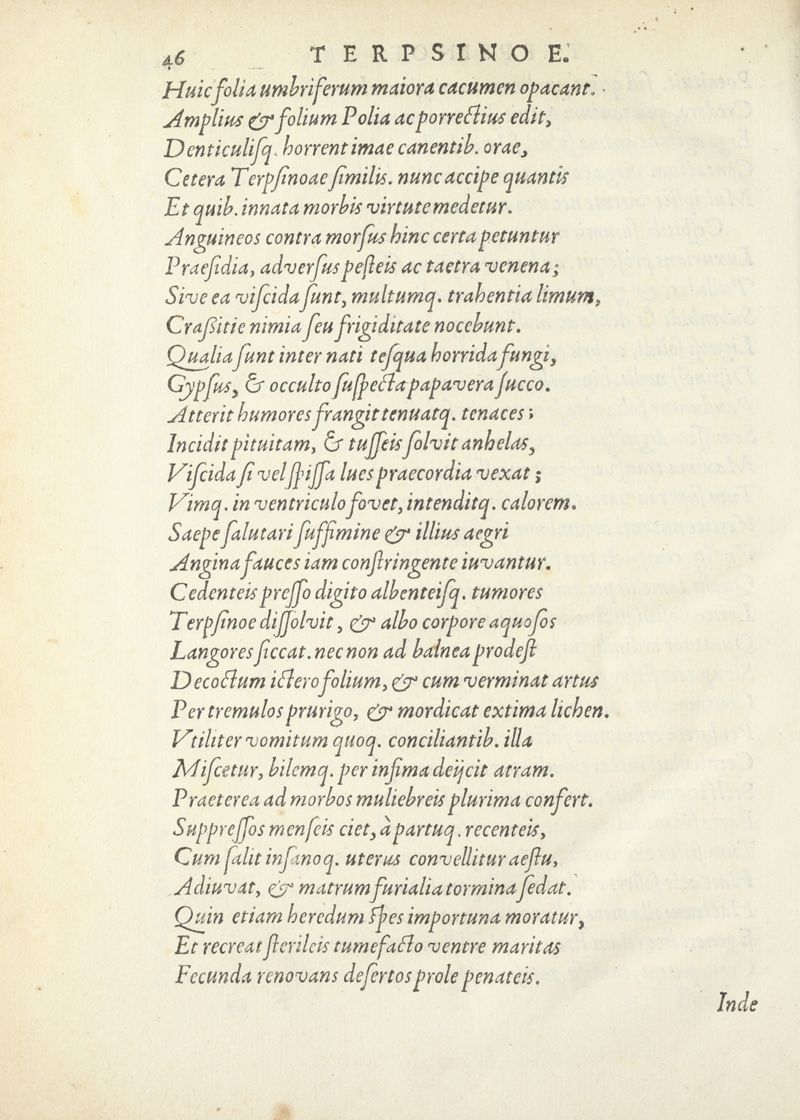 46 TERPSINOE.
Huic folia umbriferum maiora cacumen opacant.
Amplius & folium Polia ac porrectius edit,
Denticulisq. horrent imae canentib. orae,
Cetera Terpsinoae similis. nunc accipe quantis
Et quib. innata morbis virtute medetur.
Anguineos contra morsus hinc certa petuntur
Praesidia, adversus pesteis ac taetra venena;
Sive ea viscida sunt, multumq. trahentia limum,
Crassitie nimia seu frigiditate nocebunt.
Qualia sunt inter nati tesqua horrida fungi,
Gypsus, & occulto suspecta papavera succo.
Atterit humores frangit tenuatq. tenaces;
Incidit pituitam, & tusseis solvit anhelas,
Viscida si vel spissa lues praecordia vexat;
Vimq. in ventriculo fovet, intenditq. calorem.
Saepe salutari suffimine & illius aegri
Angina fauces iam constringente iuvantur.
Cedenteis presso digito albenteisq. tumores
Terpsinoe dissolvit, & albo corpore aquosos
Langores siccat. nec non ad balnea prodest
Decoctum ictero folium, & cum verminat artus
Per tremulos prurigo, & mordicat extima lichen.
Vtiliter vomitum quoq. conciliantib. illa
Miscetur, bilemq. per infima deijcit atram.
Praeterea ad morbos muliebreis plurima confert.
Suppressos menseis ciet, à partuq. recenteis,
Cum salit insanoq. uterus convellitur aestu,
Adiuvat, & matrum furialia tormina sedat.
Quin etiam heredum spes importuna moratur,
Et recreat sterileis tumefacto ventre maritas
Fecunda renovans desertos prole penateis.
Inde